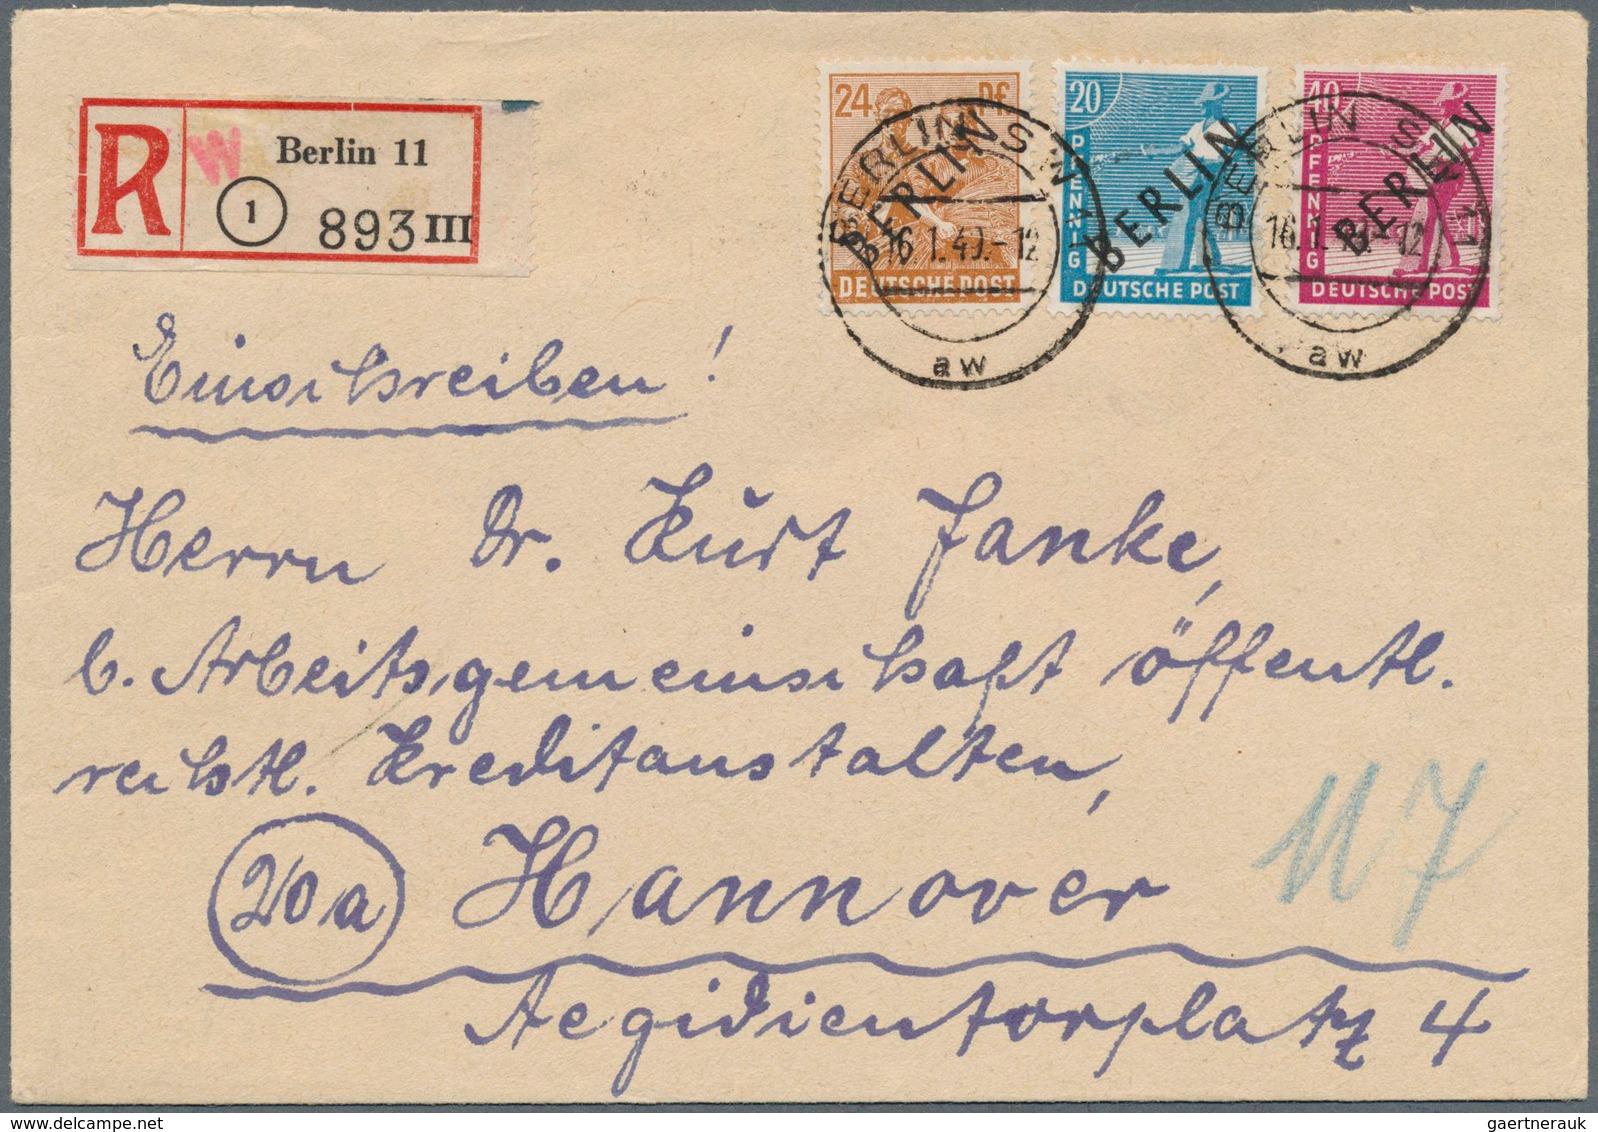 R W Berlin 11
1 893 III
24 Pf
DEUTSCHE POST
BERLIN
20 PFENNIG
DEUTSCHE POST
BERLIN
40 PFENNIG
DEUTSCHE POST
BERLIN
BERLIN SW 11
16.1.49.-12
aw
BERLIN SW 11
16.1. -12
aw
Einschreiben!
Herrn Dr. Kurt Janke,
b. Arbeitsgemeinschaft öffentl.
rechtl. Kreditanstalten,
20a Hannover
Aegidientorplatz 4
117
gaertnerauk